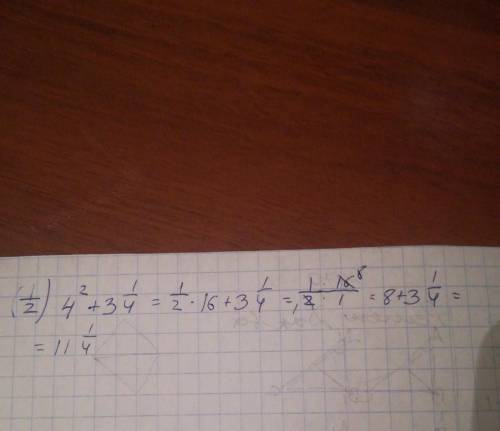 (1/2) 4² + 3 1/4 = 1/2 · 16 + 3 1/4 = 1 · 16 8 / 1 2 · 1 = 8 + 3 1/4 =
= 11 1/4